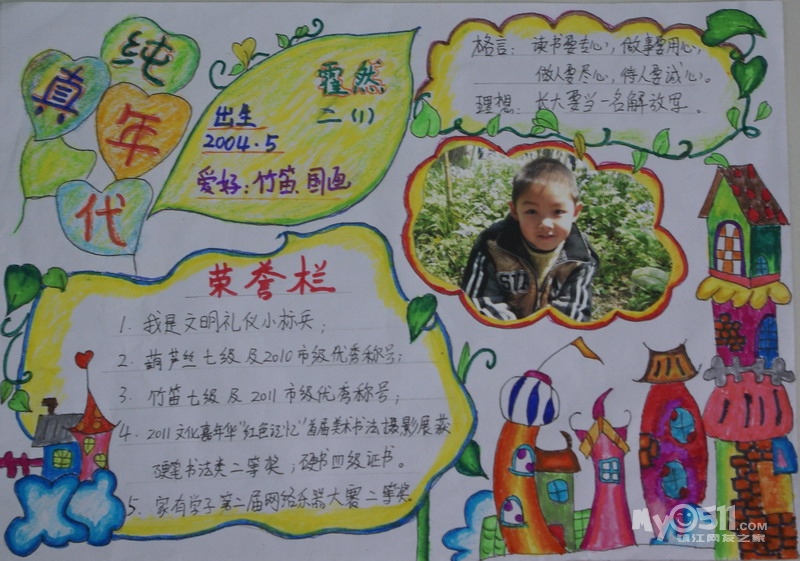 纯真年代
霍然
二(1)
出生
2004.5
爱好:竹笛、国画
格言: 读书要专心,做事要用心,
做人要尽心,待人要诚心。
理想: 长大要当一名解放军。
荣誉栏
1. 我是文明礼仪小标兵;
2. 葫芦丝七级及2010市级优秀称号;
3. 竹笛七级及2011市级优秀称号;
4. 2011文化嘉年华"红色记忆"首届美术书法摄影展获
硬笔书法类二等奖;硬书四级证书。
5. 家有学子第二届网络乐器大赛二等奖
My0511.COM
镇江网友之家